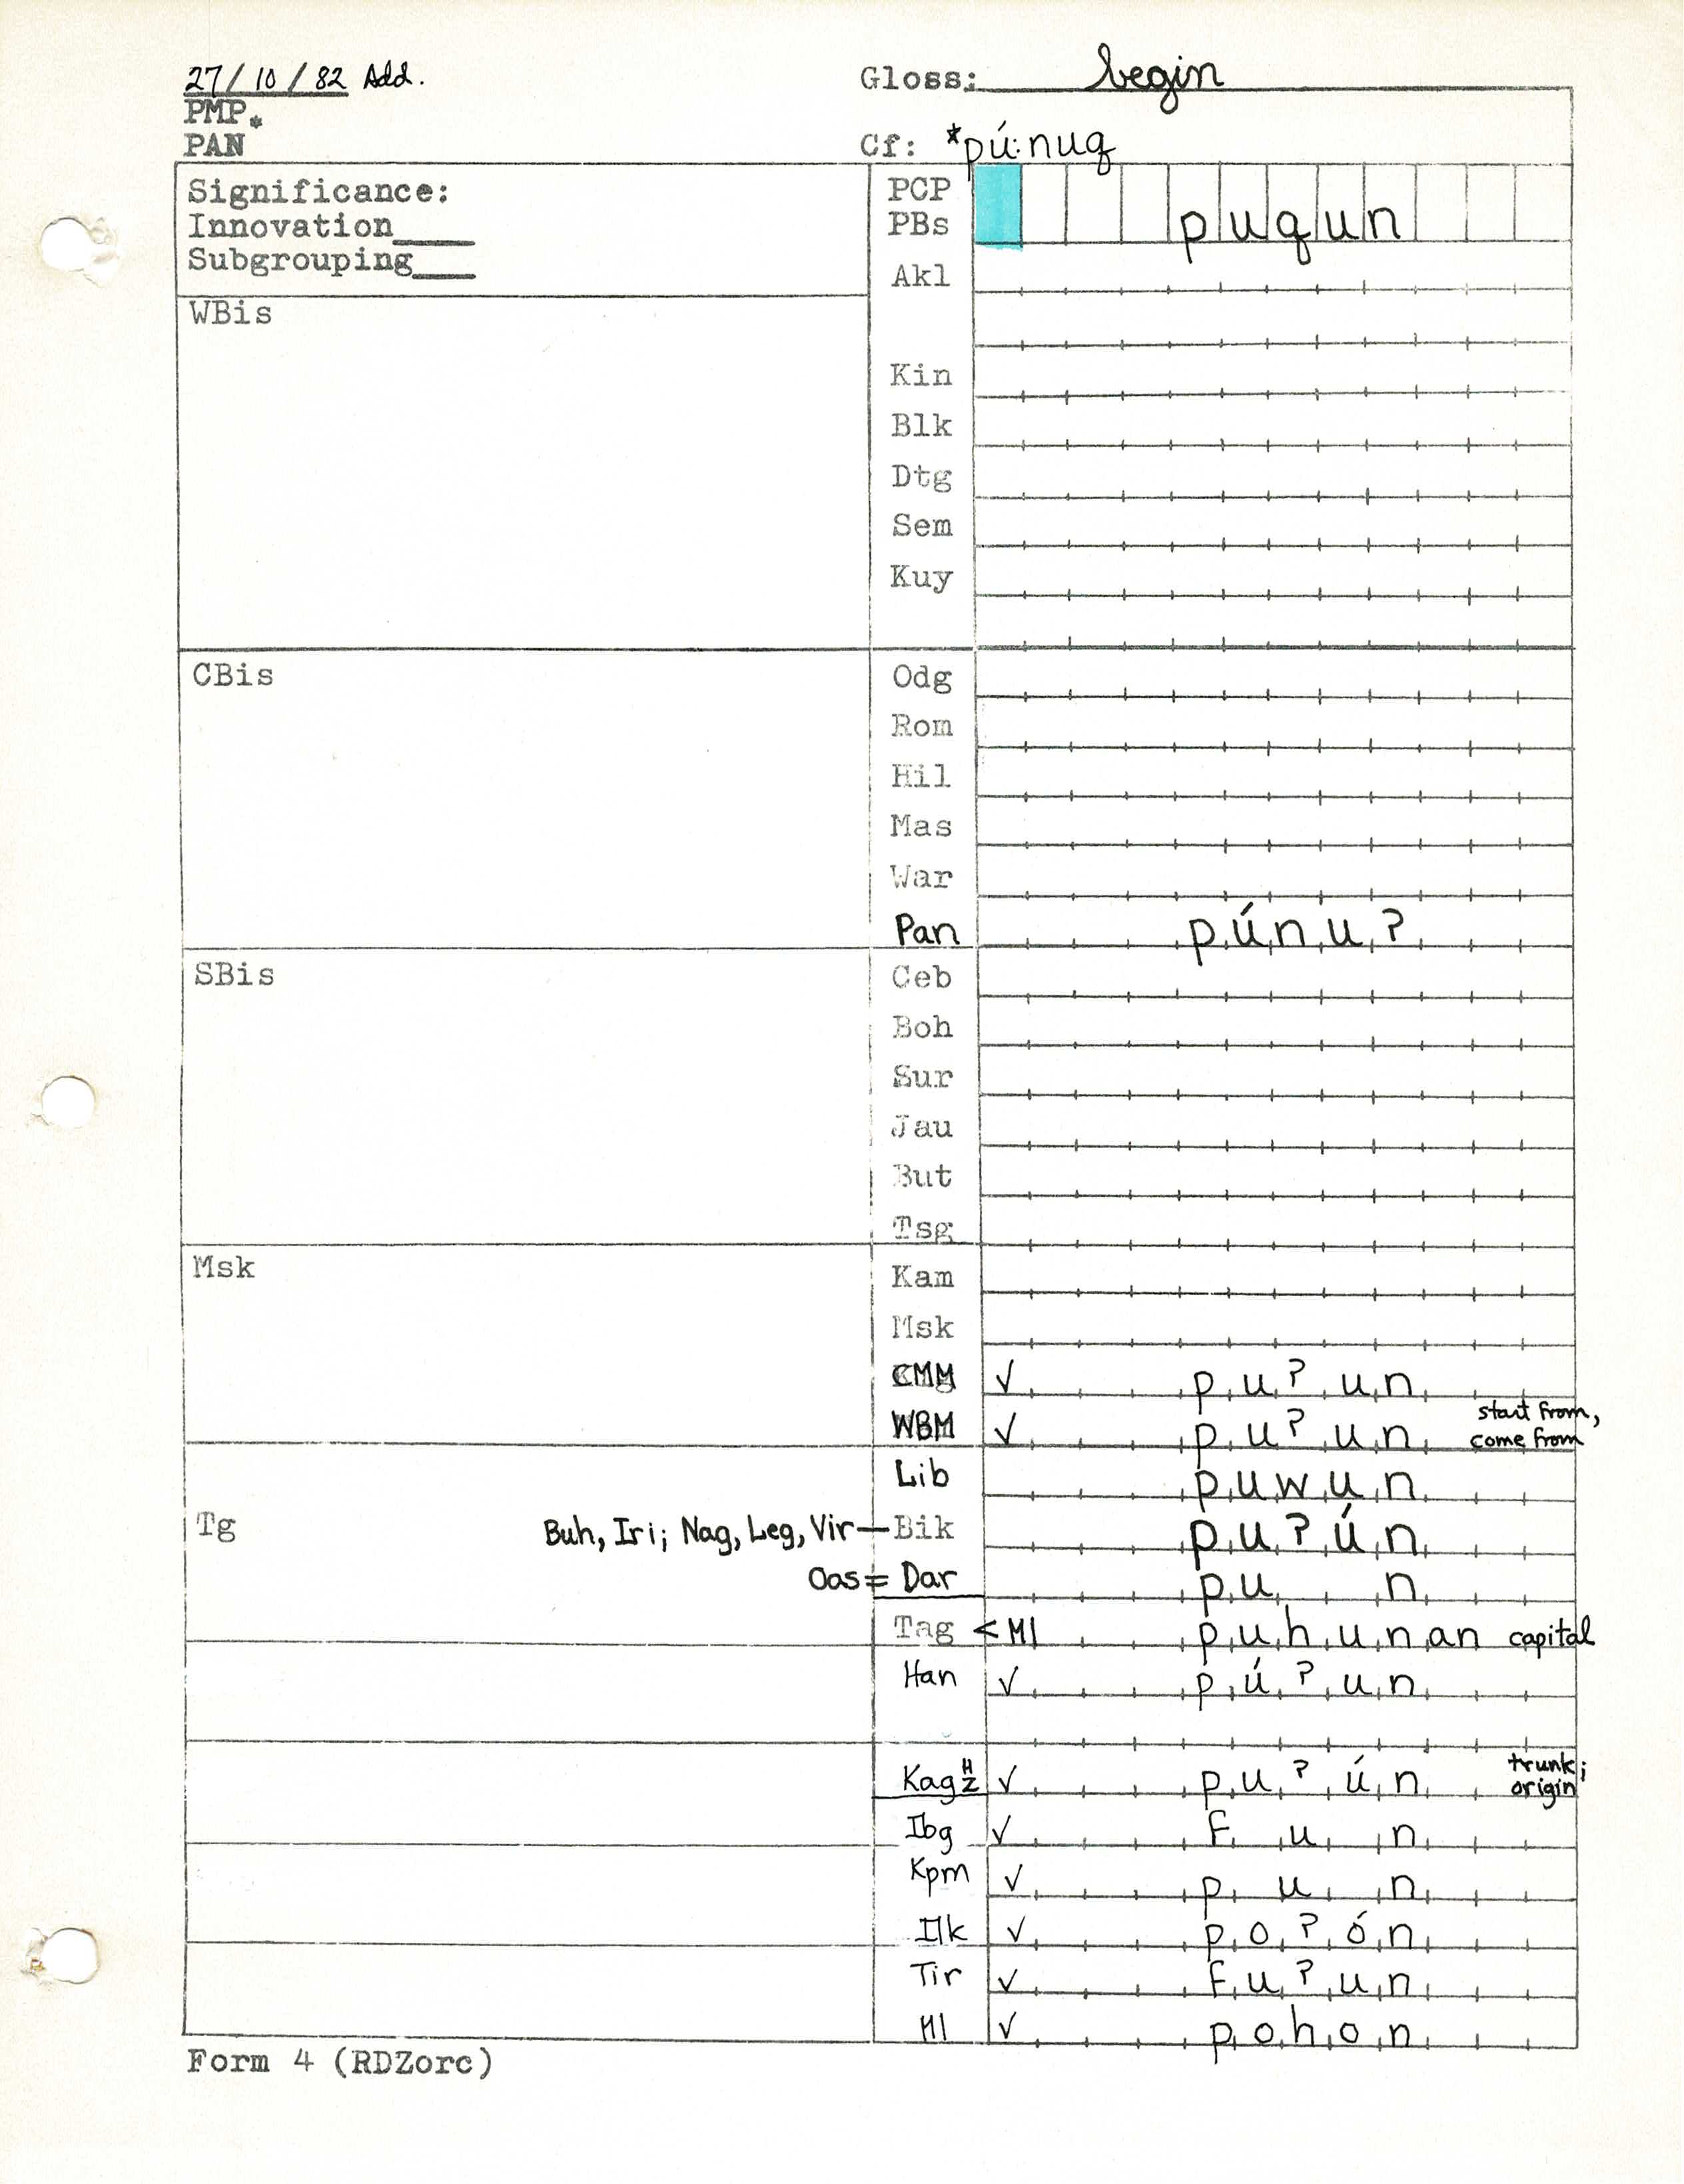 27/10/82 Add.
Gloss: begin
PMP *
PAN
Cf: *pú:nuq
Significance:
Innovation____
Subgrouping___
PCP
PBs puqun
Akl
WBis
Kin
Blk
Dtg
Sem
Kuy
CBis
Odg
Rom
Hil
Mas
War
Pan púnu?
SBis
Ceb
Boh
Sur
Jau
But
Tsg
Msk
Kam
Msk
CMM ✓ pu?un
WBM ✓ pu?un start from, come from
Lib puwun
Tg Buh, Iri; Nag, Leg, Vir—Bik pu?ún
Oas = Dar pu n
Tag < Ml puhunan capital
Han ✓ pú?un
Kag H Z ✓ pu?ún trunk; origin
Ibg ✓ f u n
Kpm ✓ p u n
Ilk ✓ po?ón
Tir ✓ fu?un
Ml ✓ pohon
Form 4 (RDZorc)